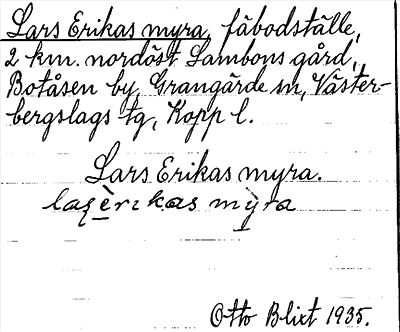 Lars Erikas myra, fäbodställe,
2 km. nordöst Lambons gård,
Botåsen by, Grangärde sn, Väster-
bergslags tg, Kopp l.
Lars Erikas myra.
Otto Blixt 1935.